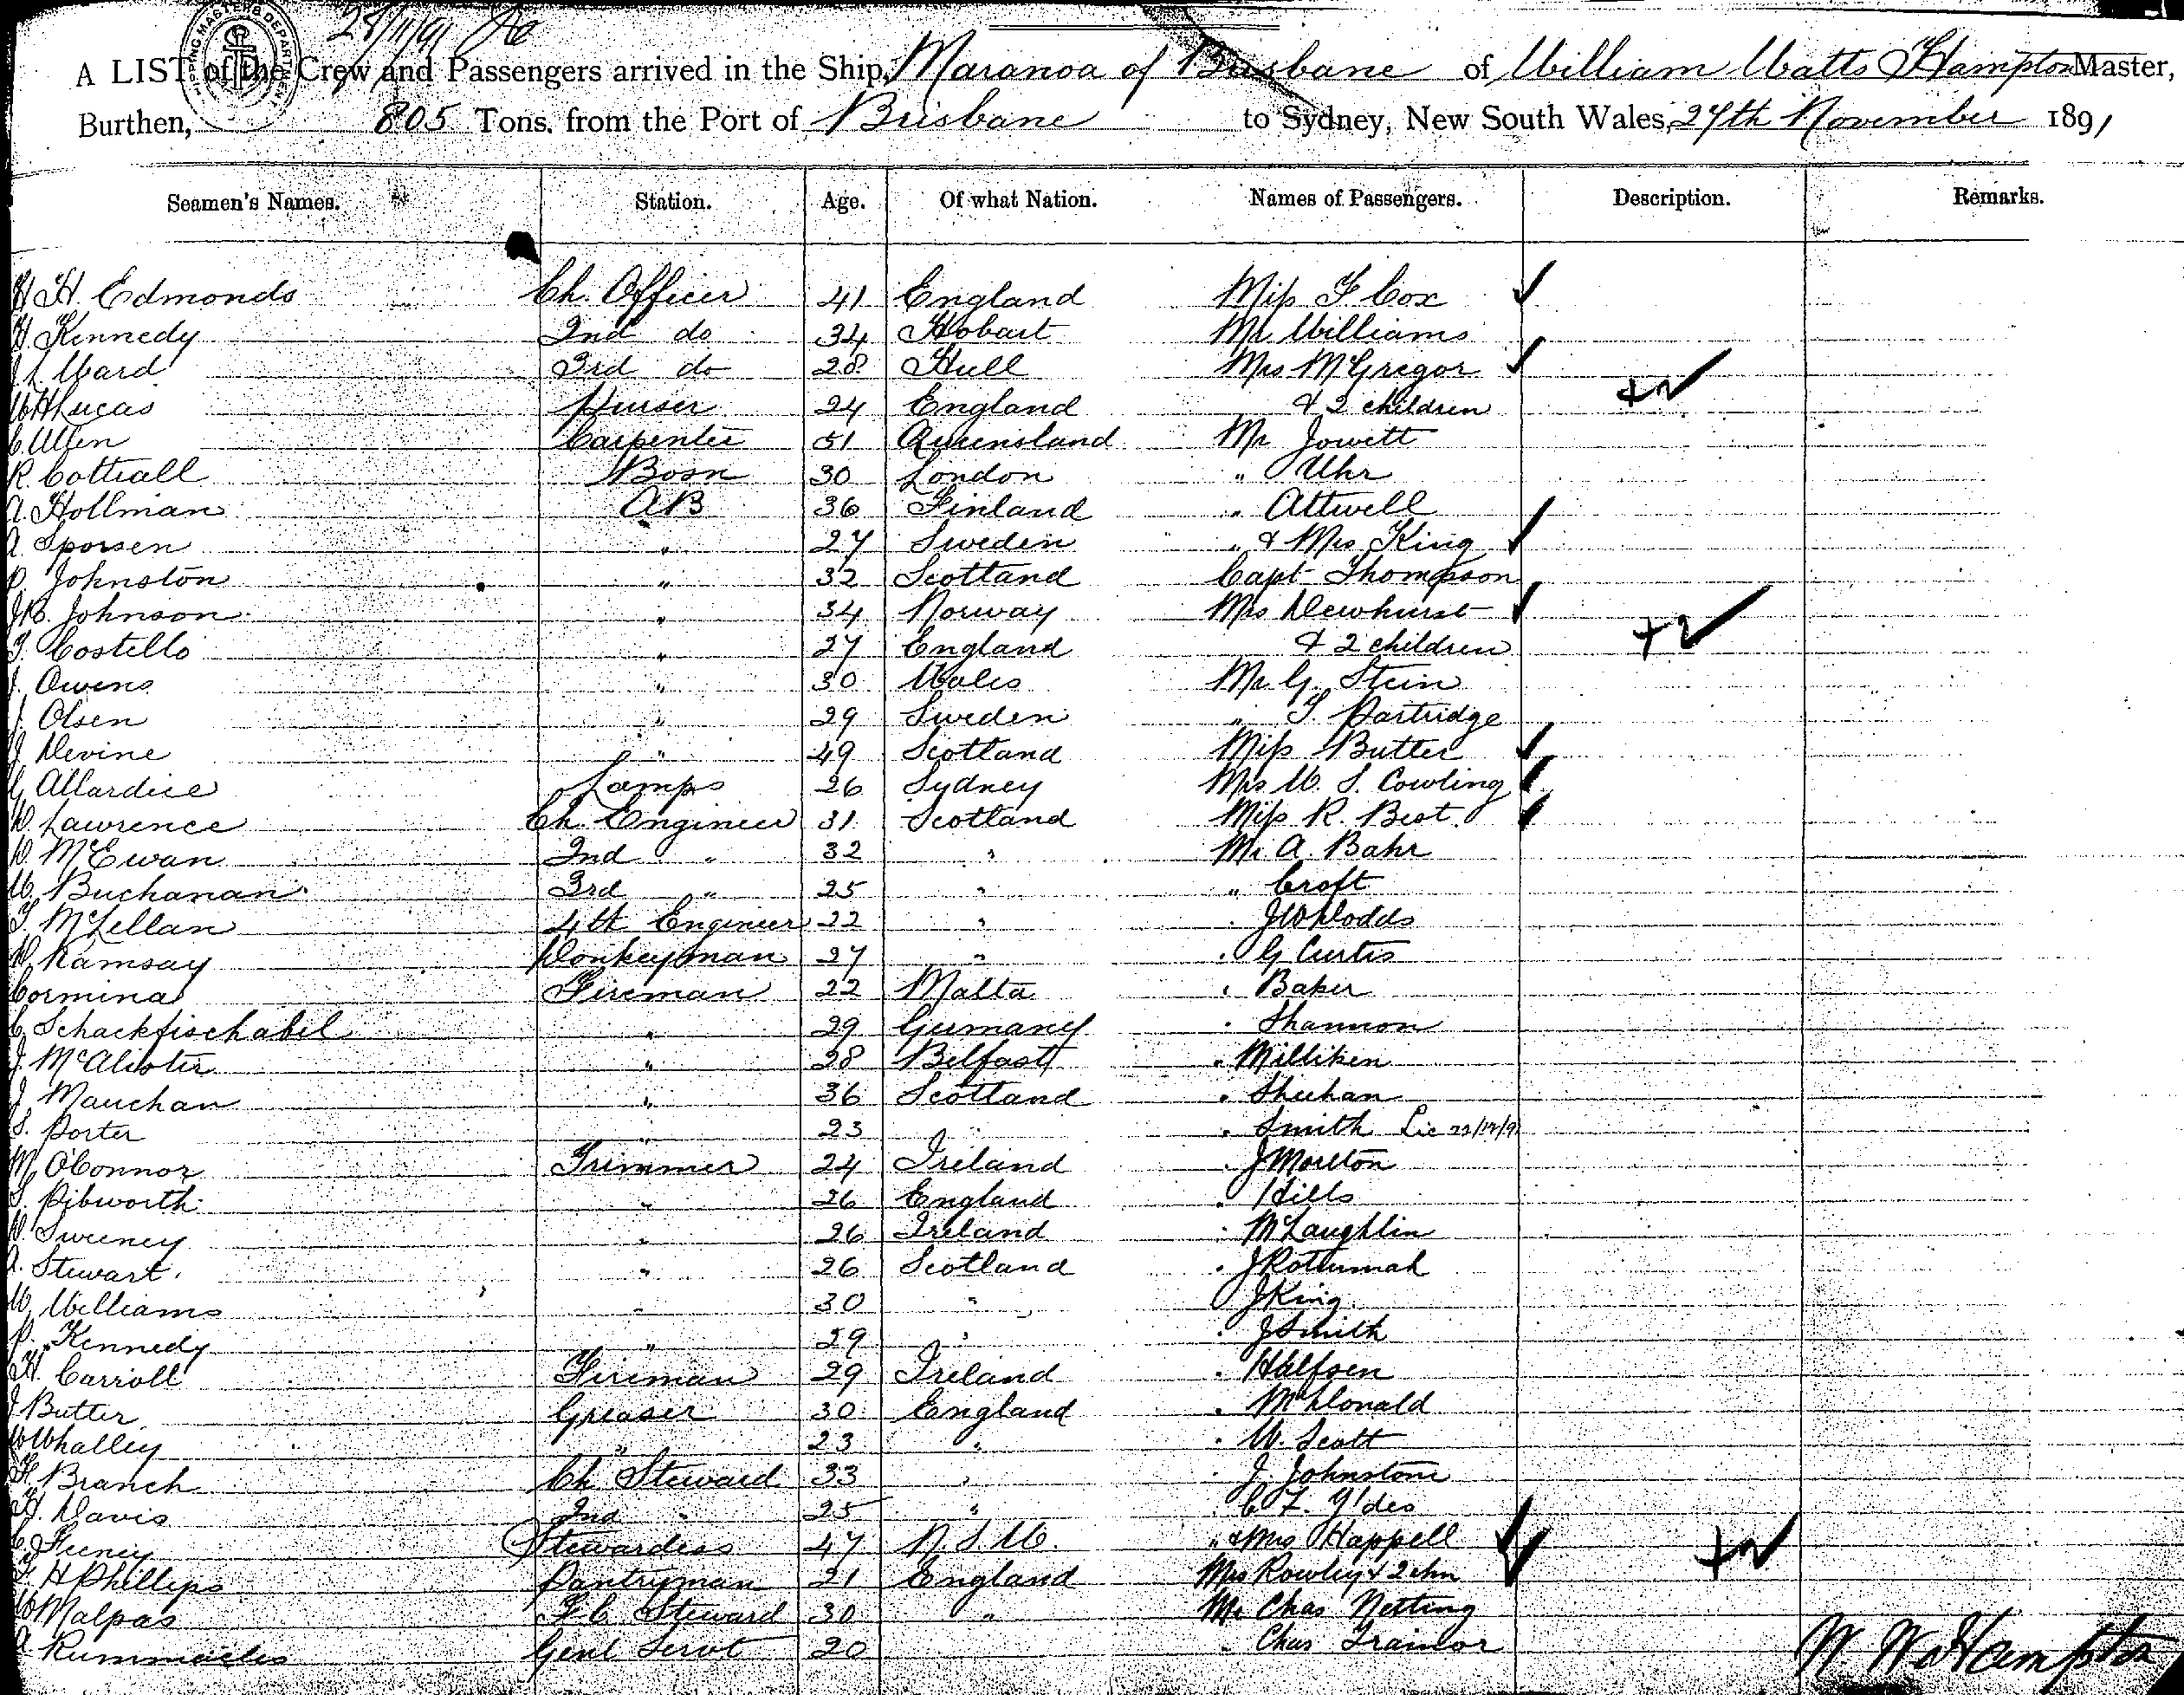 28/11/91
SHIPPING MASTER'S DEPARTMENT
A LIST of the Crew and Passengers arrived in the Ship, Maranoa of Brisbane of William Watts Hampton Master,
Burthen, 805 Tons. from the Port of Brisbane to Sydney, New South Wales, 27th November 1891
Seamen's Names. Station. Age. Of what Nation. Names of Passengers. Description. Remarks.
H H. Edmonds Ch. Officer 41 England Miss F. Cox
H. Kennedy 2nd do 34 Hobart Mr Williams
Ward 3rd do 28 Hull Mrs McGregor
W H Lucas Purser 24 England & 2 children +2
C Allen Carpenter 51 Queensland Mr Jowett
R. Cottrall Bosn 30 London " Uhr
A. Hollman AB 36 Finland " Attwell
A. Sporsen " 27 Sweden " & Mrs King
P. Johnston " 32 Scotland Capt Thompson
J B. Johnson " 34 Norway Mrs Dewhurst
T. Costello " 27 England & 2 children +2
J. Owens " 30 Wales Mr G. Stein
J. Olsen " 29 Sweden " T. Partridge
J. Devine " 49 Scotland Miss Butter
G. Allardice Lamps 26 Sydney Mrs W. S. Cowling
D. Lawrence Ch. Engineer 31 Scotland Miss R. Best
D. McEwan 2nd " 32 " Mr A. Bahr
W. Buchanan 3rd " 25 " " Croft
T. McLellan 4th Engineer 22 " " J W Dodds
D. Ramsay Donkeyman 27 " " G Curtis
Cormina Fireman 22 Malta " Baker
C. Schackfischabel " 29 Germany " Shannon
J. McAlister " 28 Belfast " Milliken
J Mauchan " 36 Scotland " Sheehan
S. Porter " 23 " " Smith
M. O'Connor Trimmer 24 Ireland " J Morlton
S. Pibworth " 26 England " Hills
D. Sweeney " 26 Ireland " McLaughlin
A. Stewart " 26 Scotland " J Rottumah
W. Williams " 30 " J King
P. Kennedy " 29 " " J Smith
H. Carroll Fireman 29 Ireland " Halfsen
J Butter Greaser 30 England " McDonald
W Whalley " 23 " " W. Scott
F. Branch Ch Steward 33 " " J. Johnstone
H. Davis 2nd " 25 " " C F.
C. Feeney Stewardess 47 N. S. W. " & Mrs Happell
F H Phillips Pantryman 21 England Mrs Rowley & 2 chn +2
W Malpas F. C Steward 30 " Mr Chas Netting
A. Genl Servt 20 " Chas Trainor
W W Hampton